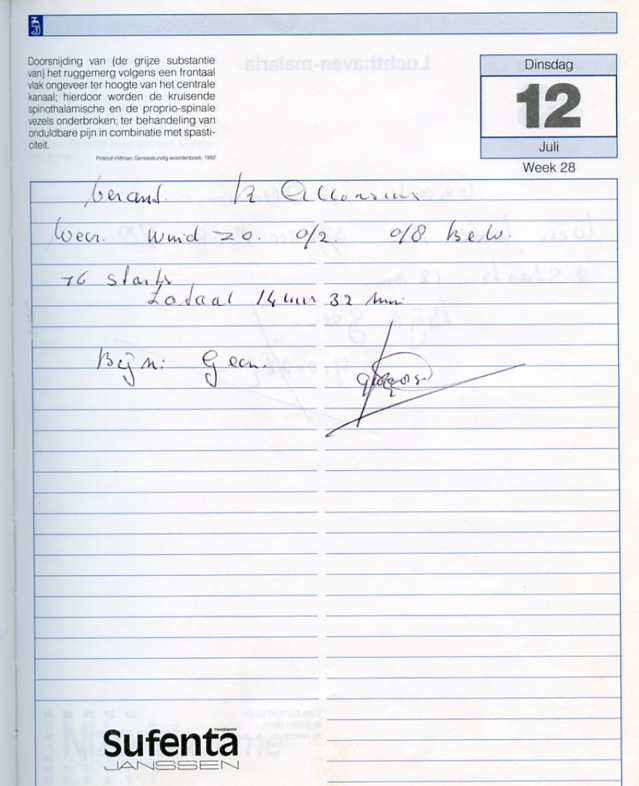 Doorsnijding van (de grijze substantie
van) het ruggemerg volgens een frontaal
vlak ongeveer ter hoogte van het centrale
kanaal; hierdoor worden de kruisende
spinothalamische en de proprio-spinale
vezels onderbroken; ter behandeling van
onduldbare pijn in combinatie met spasti-
citeit.
Pinkhof-Hilfman: Geneeskundig woordenboek, 1992
Luchthaven-malaria
Dinsdag
12
Juli
Week 28
Weer. Wind ZO. 0/2 0/8 Bew.
76 starts
Totaal 14 uur 32 min.
Bijz: Geen.
Sufenta
TRADEMARK
JANSSEN